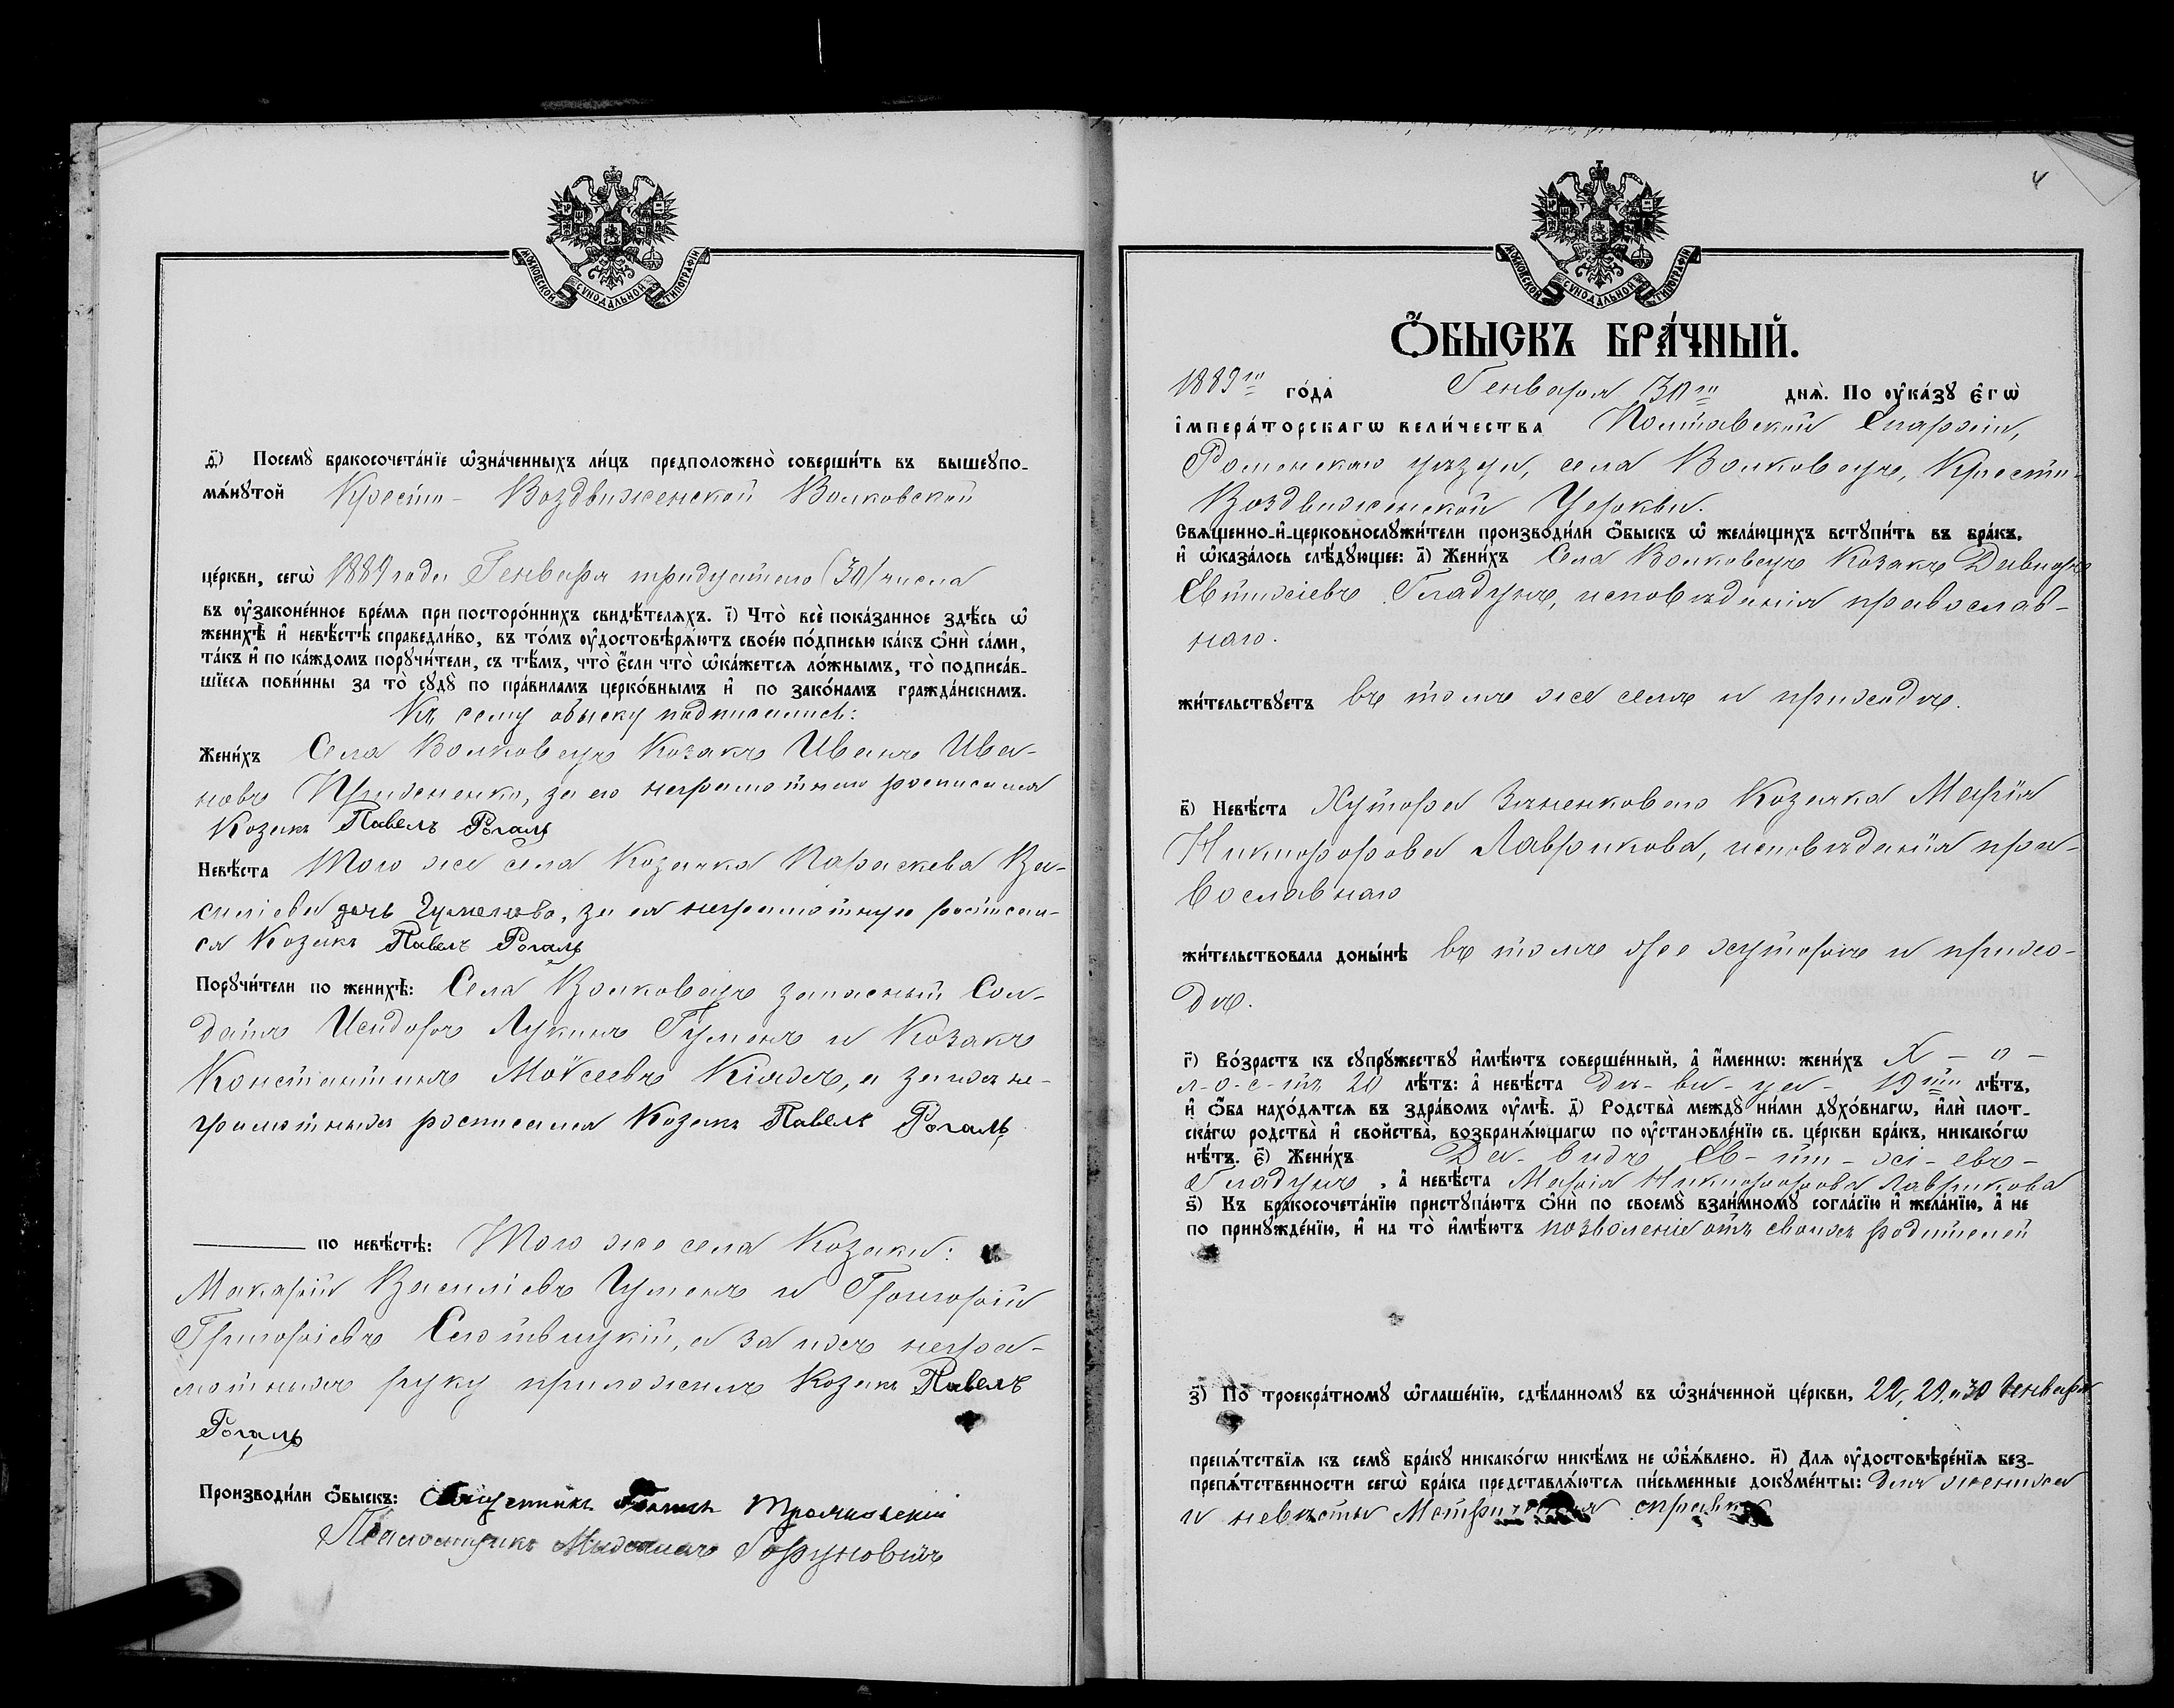 МОСКОВСКОЙ СѴНОДАЛЬНОЙ ТИПОГРАФІИ
д҃) Посемꙋ̀ бракосочета́нїе ѡ҆зна́ченныхъ ли́цъ предположено̀ соверши́ть въ вышеꙋпо-
мѧ́нꙋтой Кресто-Воздвиженской Волковской
це́ркви, сегѡ̀ 1889 года Генваря тридцатого (30) числа
въ ᲂу҆зако́ненное вре́мѧ при посторо́ннихъ свидѣ́телѧхъ. і҃) Что̀ всѐ пока́занное здѣ́сь ѡ҆
женихѣ̀ и҆ невѣ́стѣ справедли́во, въ то́мъ ᲂу҆достовѣрѧ́ютъ свое́ю по́дписью ка́къ ѻ҆нѝ са́ми,
та́къ и҆ по ка́ждомъ порꙋчи́тели, съ тѣ́мъ, что̀ є҆́сли что̀ ѡ҆ка́жетсѧ ло́жнымъ, то̀ подписа́в-
шїесѧ пови́нны за то̀ сꙋдꙋ̀ по пра́виламъ церко́внымъ и҆ по зако́намъ гражда́нскимъ.
Къ сему обыску подписались:
Жени́хъ Села Волковецъ Козакъ Иванъ Ива-
новъ Приженко, за его неграмотного росписался
Козакъ Павелъ Рогаль
Невѣ́ста Того же села Козачка Параскева Ва-
силіева дочь Гуменова, за ея неграмотную росписал-
ся Козакъ Павелъ Рогаль
Порꙋчи́тели по женихѣ̀: Села Волковецъ запасный Сол-
датъ Исидоръ Лукинъ Гуменъ и Козакъ
Константинъ Моѵсеевъ Кіяхъ, а за ихъ не-
грамотныхъ росписался Козакъ Павелъ Рогаль
по невѣ́стѣ: Того же села Козаки:
Макарій Василіевъ Гуменъ и Григорій
Григоріевъ а за ихъ негра-
мотныхъ руку приложилъ Козакъ Павелъ
Рогаль
Производи́ли ѻ҆́быскъ: Священникъ Трояновскій
Псаломщикъ
МОСКОВСКОЙ СѴНОДАЛЬНОЙ ТИПОГРАФІИ
4
Ѻ҆́БЫСКЪ БРА́ЧНЫЙ.
1889го го́да Генваря 30го днѧ̀. По ᲂу҆ка́зꙋ є҆гѡ̀
і҆мпера́торскагѡ вели́чества Полтавской Епархіи,
Роменскаго уѣзда, села Волковецъ, Кресто-
Воздвиженской Церкви.
Свѧще́нно-и҆-церковнослꙋжи́тели производи́ли ѻ҆́быскъ ѡ҆ жела́ющихъ встꙋпи́ть въ бра́къ,
и҆ ѡ҆каза́лось слѣ́дꙋющее: а҃) Жени́хъ Села Волковецъ Козакъ Давидъ
Евтихіевъ Гладунъ, исповѣданія православ-
наго.
жи́тельствꙋетъ въ томъ же селѣ и приходѣ.
в҃) Невѣ́ста Хутора Заненкового Козачка Марія
Никифорова Лаврикова, исповѣданія пра-
вославнаго
жи́тельствовала доны́нѣ въ томъ же хуторѣ и прихо-
дѣ.
г҃) Во́зрастъ къ сꙋпрꙋ́жествꙋ и҆мѣ́ютъ соверше́нный, а҆ и҆́меннѡ: жени́хъ Х-о-
л-о-с-тъ 20 лѣ́тъ: а҆ невѣ́ста дѣ-ви-ца- 19ти лѣ́тъ,
и҆ ѻ҆́ба нахо́дѧтсѧ въ здра́вомъ ᲂу҆мѣ̀. д҃) Родства̀ междꙋ̀ ни́ми дꙋхо́внагѡ, и҆лѝ плот-
ска́гѡ родства̀ и҆ свойства̀, возбранѧ́ющагѡ по ᲂу҆становле́нїю св. це́ркви бра́къ, никако́гѡ
нѣ́тъ. є҃) Жени́хъ Да-видъ Ев-ти-хі-евъ-
Гладунъ, а҆ невѣ́ста Марія Никифорова Лаврикова
ѕ҃) Къ бракосочета́нїю пристꙋпа́ютъ ѻ҆нѝ по своемꙋ̀ взаи́мномꙋ согла́сїю и҆ жела́нїю, а҆ не
по принꙋжде́нїю, и҆ на то̀ и҆мѣ́ютъ позволеніе отъ своихъ родителей
з҃) По̀ троекра́тномꙋ ѡ҆глаше́нїю, сдѣ́ланномꙋ въ ѡ҆зна́ченной це́ркви, 22, 29, и 30 Генваря
препѧ́тствїѧ къ семꙋ̀ бра́кꙋ никако́гѡ никѣ́мъ не ѡ҆б̾ѧ́влено. и҃) Длѧ ᲂу҆достовѣре́нїѧ без-
препѧ́тственности сегѡ̀ бра́ка представлѧ́ютсѧ пи́сьменные докꙋме́нты: для жениха
и невѣсты Метрическая справка